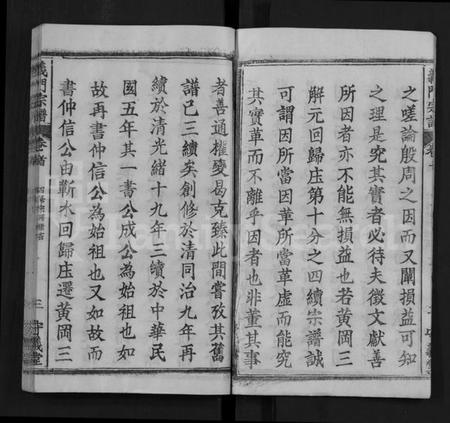 之嗟論殷周之因而又闡損益可知
之理是究其實者必待夫徵文獻善
所因者亦不能無損益也若黃岡三
解元回歸庄第十分之四續宗譜誠
可謂因所當因革所當革虛而能究
其實革而不離乎因者也非董其事
者善通權變易克臻此間嘗攷其舊
譜已三續矣創修於清同治九年再
續於清光緒十九年三續於中華民
國五年其一書公成公為始祖也如
故再書仲信公為始祖也又如故而
書仲信公由蘄水回歸庄遷黃岡三
義門宗譜
卷首
三
守義堂